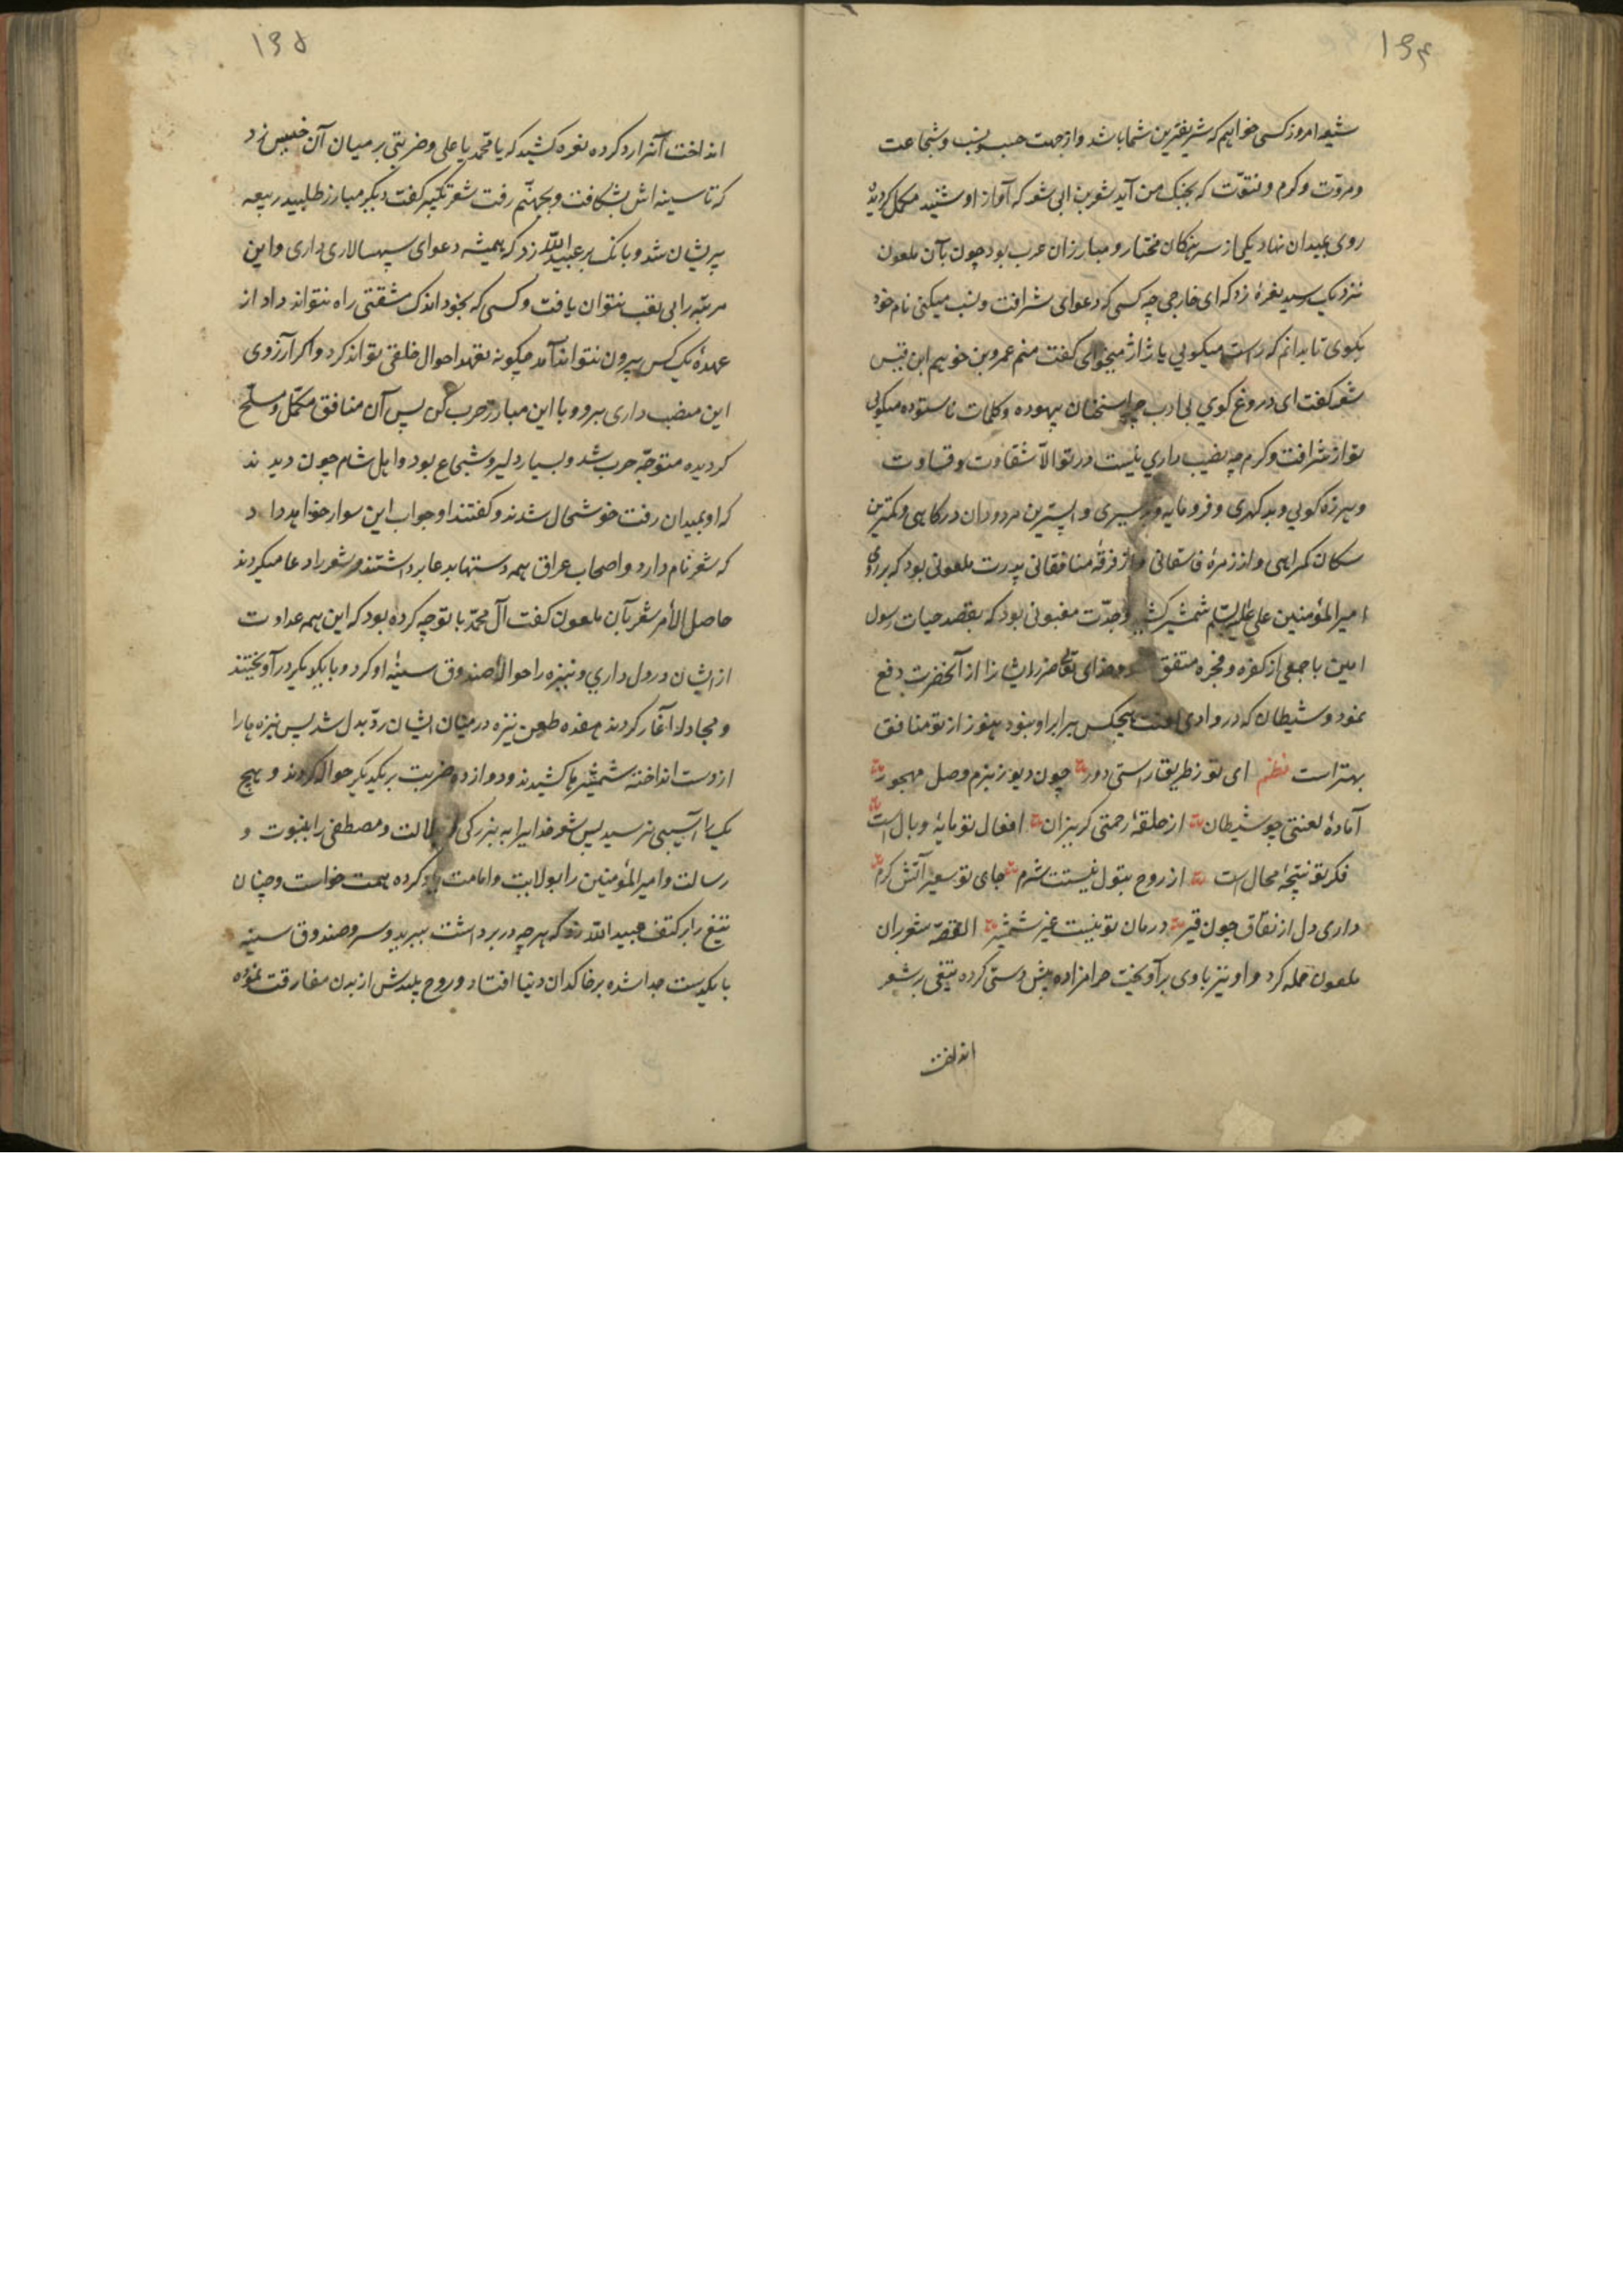 ۱۹۴
شیعه امروز کسی خواهم که شریفترین شما باشد و از جهت حسب و نسب و شجاعت
و مروّت و کرم و فتوّت که بجنک من آید شعر بن ابی شعر که آواز او شنید مکمل کردیده
روی بمیدان نهاد یکی از سرهنکان مختار و مبارزان عرب بود چون بآن ملعون
نزدیک رسید نعرهٔ زد که ای خارجی چه کسی که دعوای شرافت و نسب میکنی نام خود
بکوی تا بدانم که راست میکویی یا ژاژ میخوای کفت منم عمرو بن خویم ابن قیس
شعر کفت ای دروغ کوي بی ادب چرا سخنان بیهوده و کلمات ناستوده میکویی
تو از شرافت و کرم چه نصیب داري نیست در تو الاّ شقاوت و قساوت
و هرزه کویی و بد کهری و فرومایه و سیری و اپسترین مردودان درکاهی و کمترین
سکان کمراهی و از زمرهٔ فاسقانی و از فرقهٔ منافقانی پدرت ملعونی بود که بر روی
امیرالمؤمنین علی علیه السلم شمشیر کشید و جدّت مغبونی بود که بقصد حیات رسول
امین با جمعی از کفره و فجره متفق شد و خدای تعالی ضرر ایشانرا از آنحضرت دفع
نمود و شیطان که در وادی لعنت هیچکس برابر او نبود هنوز از تو منافق
بهتر است نظم ای تو ز طریق راستی دور چون دیو ز بزم وصل مهجور
آمادهٔ لعنتی چو شیطان از حلقهٔ رحمتی کریزان افعال تو مایهٔ وبال است
فکر تو نتیجهٔ محال است از روح بتول نیستت شرم جای تو سعیر آتش کرم
داری دل از نفاق چون قیر درمان تو نیست غیر شمشیر القصّه شعر بران
ملعون حمله کرد و او نیز با وی برآویخت حرامزاده پیش دستی کرده تیغی بر شعر
انداخت
۱۹۵
انداخت آنرا رد کرده نعره کشید که یا محمّد یا علی و ضربتی بر میان آن خبیس زد
که تا سینه اش بشکافت و بجهنّم رفت شعر تکبیر کفت دیکر مبارز طلبید ربیعه
پریشان شد و بانک بر عبید الله زد که همیشه دعوای سپهسالاری داری و این
مرتبه را بی تعب نتوان یافت و کسی که بخود اندک مشقتی راه نتواند داد از
عهدهٔ یک کس بیرون نتواند آمد چکونه تعهد احوال خلقی تواند کرد و اکر آرزوی
این منصب داری برو و با این مبارز حرب کن پس آن منافق مکمّل و مسلّح
کردیده متوجّه حرب شد و بسیار دلیر و شجاع بود و اهل شام چون دیدند
که او بمیدان رفت خوشحال شدند و کفتند او جواب این سوار خواهد داد
که شعر نام دارد و اصحاب عراق همه دستها بدعا برداشتند و شعر را دعا میکردند
حاصل الأمر شعر بآن ملعون کفت آل محمّد با تو چه کرده بود که این همه عداوت
از ایشان در دل داري و نیزه را حوالهٔ صندوق سینهٔ او کرد و با یکدیکر در آویختند
و مجادله آغاز کردند هفده طعن نیزه در میان ایشان ردّ بدل شد پس نیزه ها را
از دست انداخته شمشیرها کشیدند و دوازده ضربت بر یکدیکر حواله کردند و هیچ
یک را آسیبی نرسید پس شعر خدایرا به بزرکی و جلالت و مصطفی را بنبوت و
رسالت و امیرالمؤمنین را بولایت و امامت یاد کرده همت خواست و چنان
تیغ را بر کتف عبید الله زد که هر چه در بر داشت ببرید و سر و صندوق سینه
با یکدست جدا شده بر خاکدان دنیا افتاد و روح پلیدش از بدن مفارقت نموده